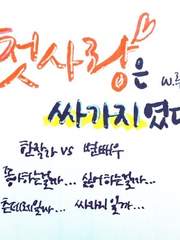 첫사랑은
w.루
싸가지였다
한작가 vs 변배우
좋아하는걸까... 싫어하는걸까...
츤데레일까... 싸가지일까...